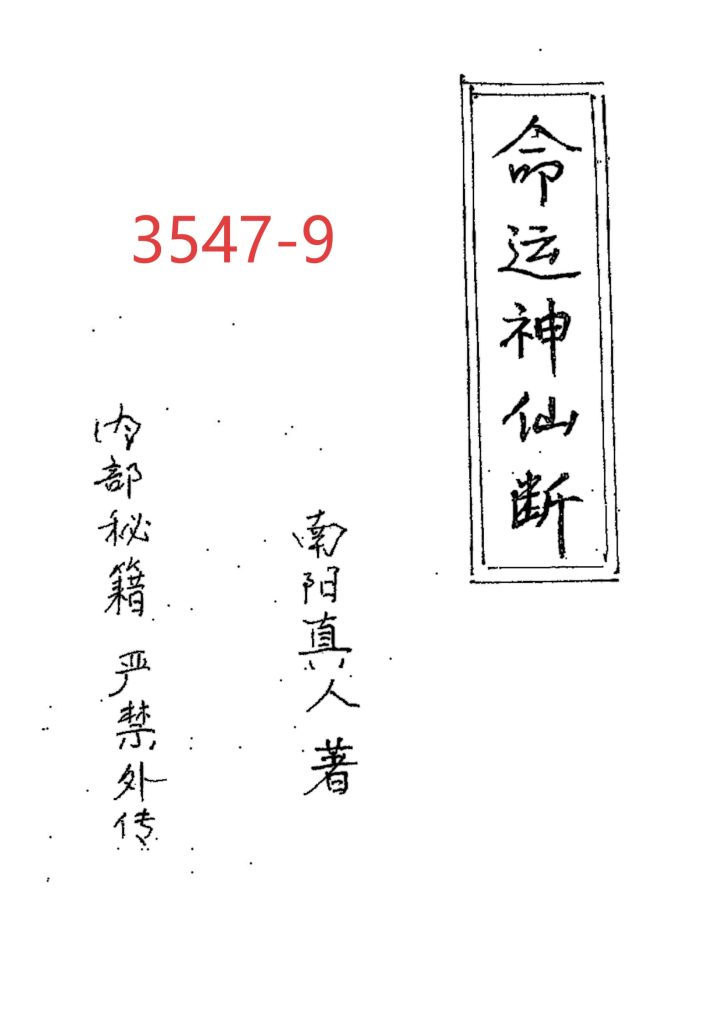 命运神仙断
3547-9
南阳真人 著
内部秘籍 严禁外传